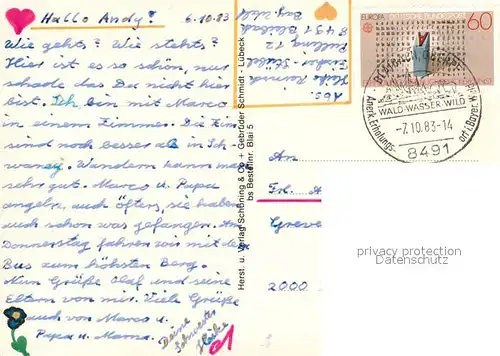 Hallo Andy! 6.10.83
Wie gehts? Wie stehts?
Hier ist es so schön, nur
schade das Du nicht hier
bist. Ich bin mit Marco
in einem Zimmer. Die
sind noch besser als in Sch-
Wandern kann man
sehr gut. Marco u. Papa
angeln auch öfters, sie haben
auch schon was gefangen. Am
Donnerstag fahren wir mit dem
Bus zum höchsten Berg.
Nun Grüße Olaf und seine
Eltern von mir. Viele Grüße
auch von Marco u.
Papa u. Mama.
Deine
Schwester
Heike
Herst. u. Verlag Schöning & Co + Gebrüder Schmidt - Lübeck
bs Bestellnr. Blai 5
Abs.
Heike
8491
Bay. Wald
EUROPA DEUTSCHE BUNDESPOST 60
WALD-WASSER-WILD
-7.10.83-14
Anerk. Erholungs- ort i. Bayer. W
8491
An
Frl. A
Greve
2000
privacy protection
Datenschutz